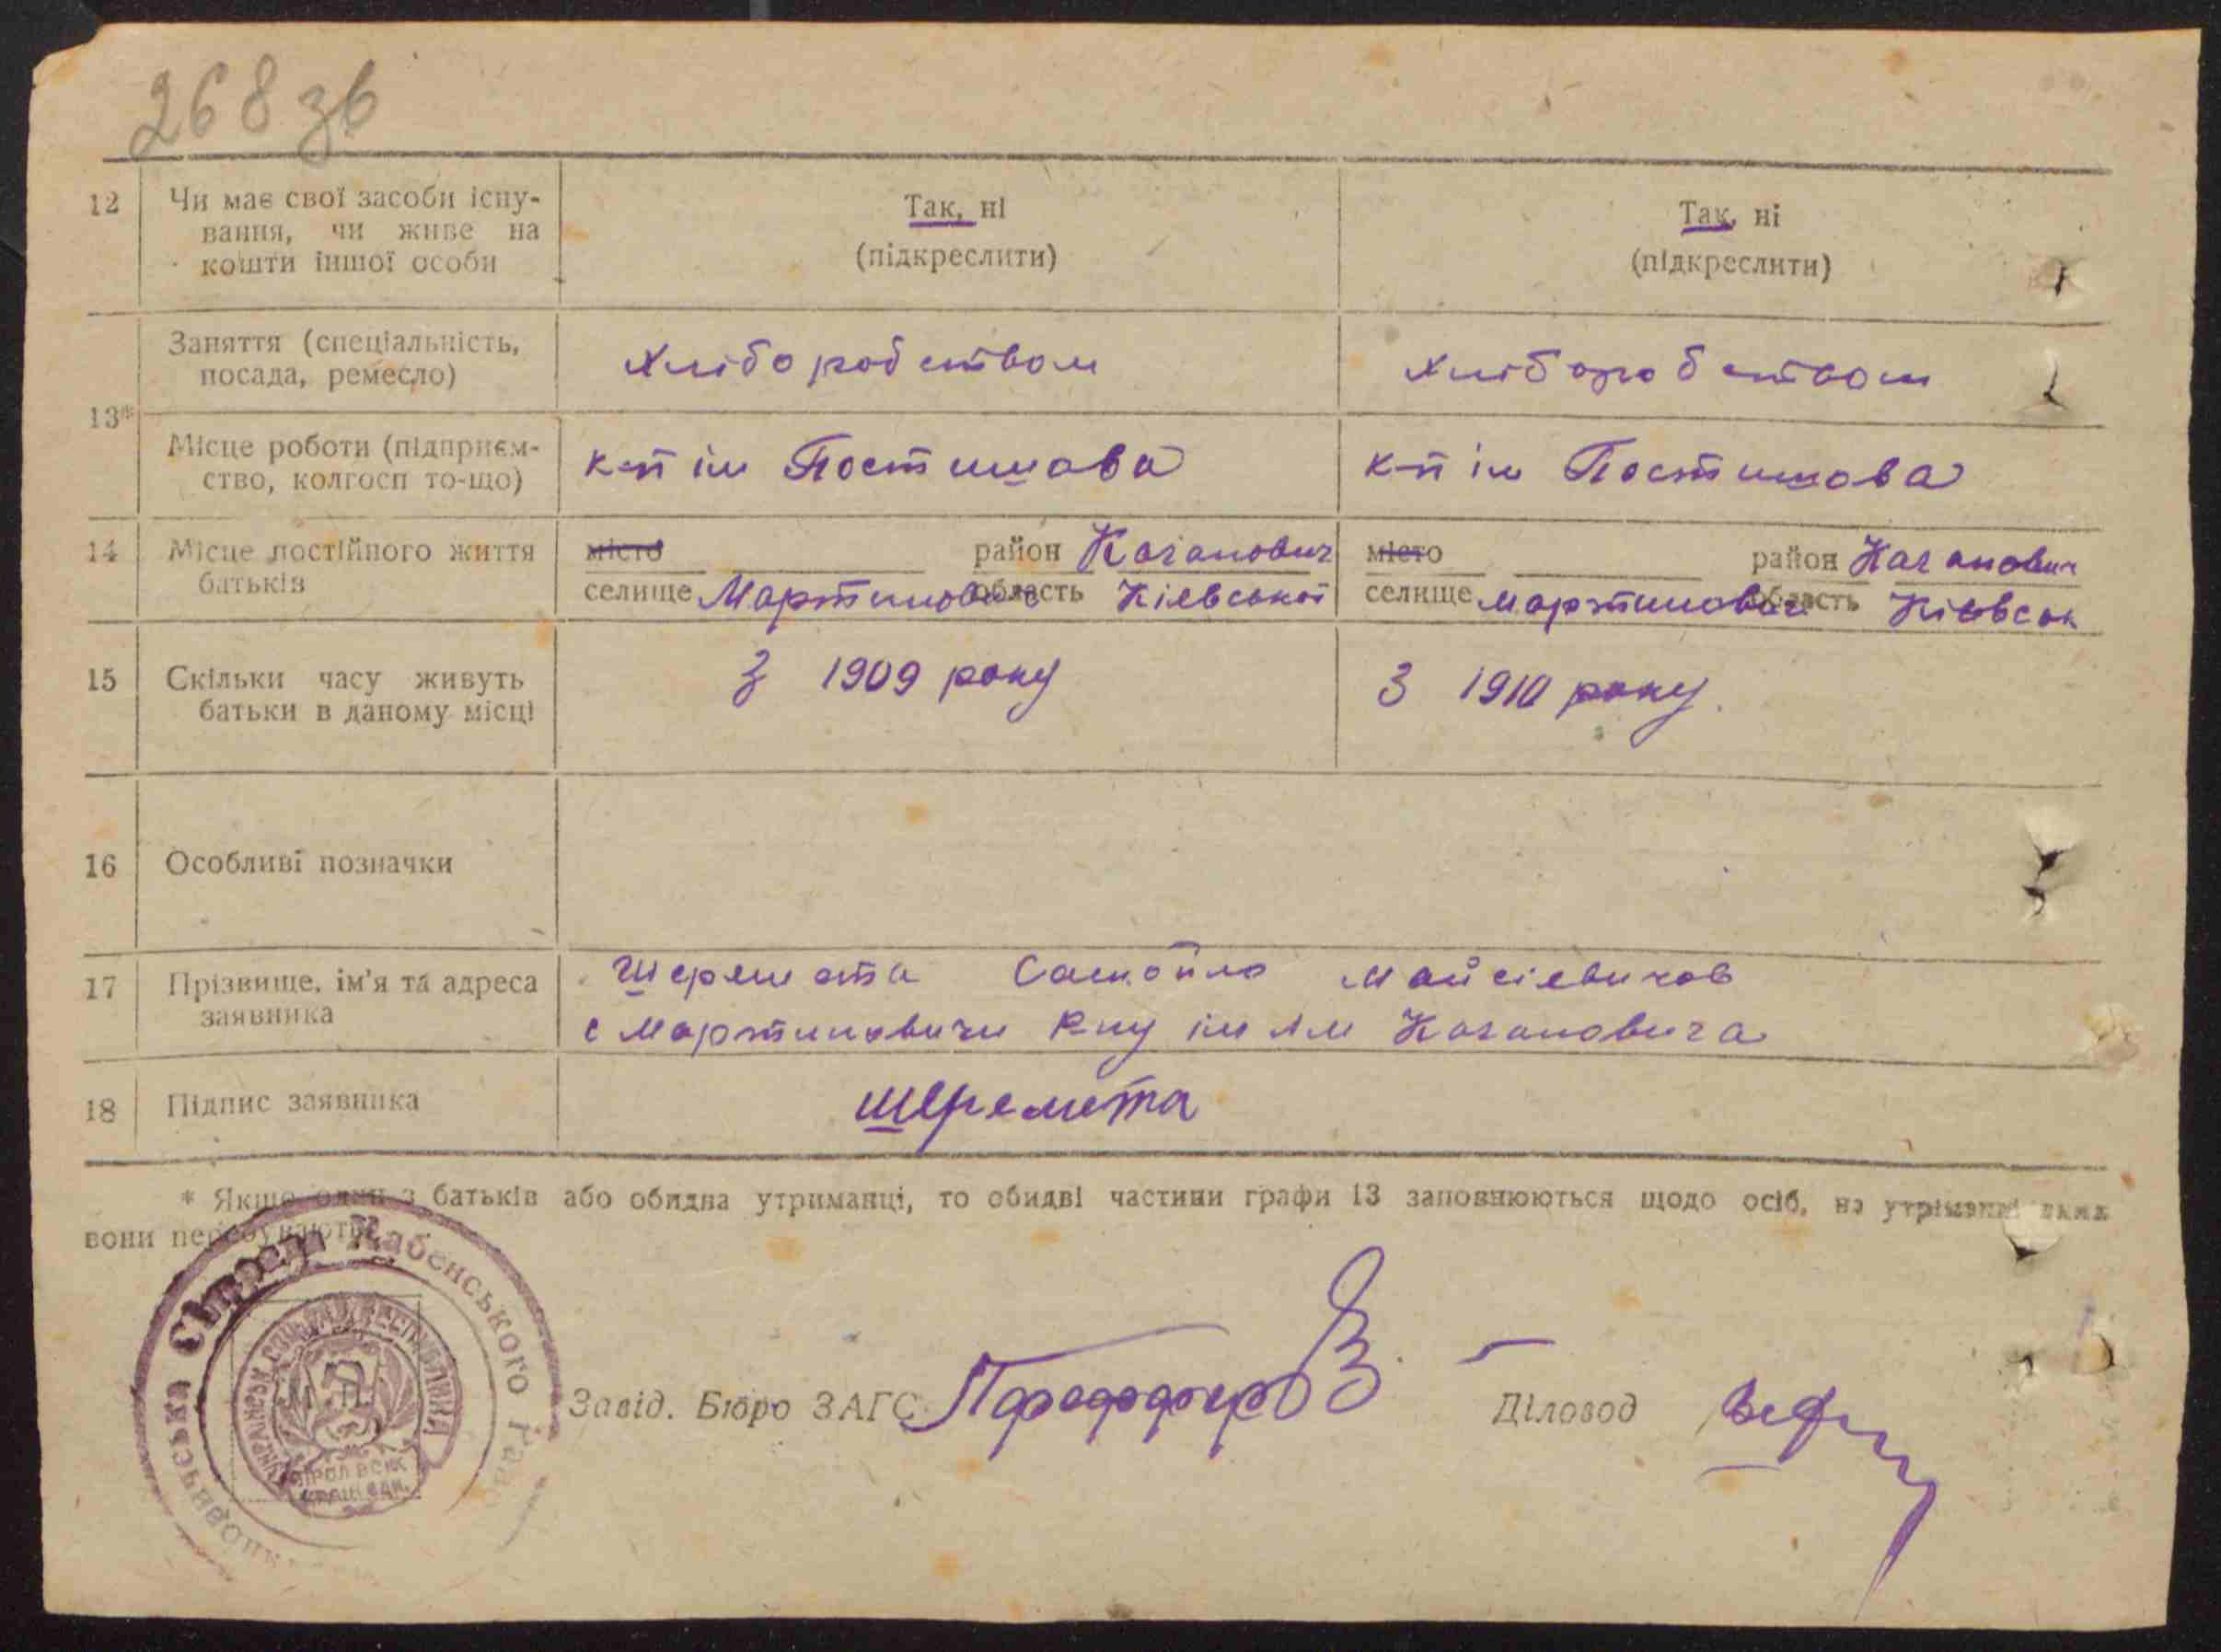 268 зв
12 Чи має свої засоби існу-
вання, чи живе на
кошти іншої особи
Так, ні
(підкреслити)
Так, ні
(підкреслити)
13*
Заняття (спеціальність,
посада, ремесло)
Хлібороб ством
Хлібороб ством
Місце роботи (підприєм-
ство, колгосп то-що)
к-п ім Постишова
к-п ім Постишова
14 Місце постійного життя
батьків
місто район Каганович
селище Мартинович область Кієвської
місто район Каганович
селище Мартинович область Кієвськ
15 Скільки часу живуть
батьки в даному місці
З 1909 року
З 1910 року.
16 Особливі позначки
17 Прізвище, ім'я та адреса
заявника
Шеремета Самойло Мойсієвичов
с Мартиновичи Р-ну ім Л М Кагановича
18 Підпис заявника
Шеремета
* Якщо один з батьків або обидва утриманці, то обидві частини графи 13 заповнюються щодо осіб, на утриманні яких
вони перебувають.
Сільрада Хабенського
УКРАЇНСЬКА РЕСПУБЛІКА
Завід. Бюро ЗАГС
Діловод